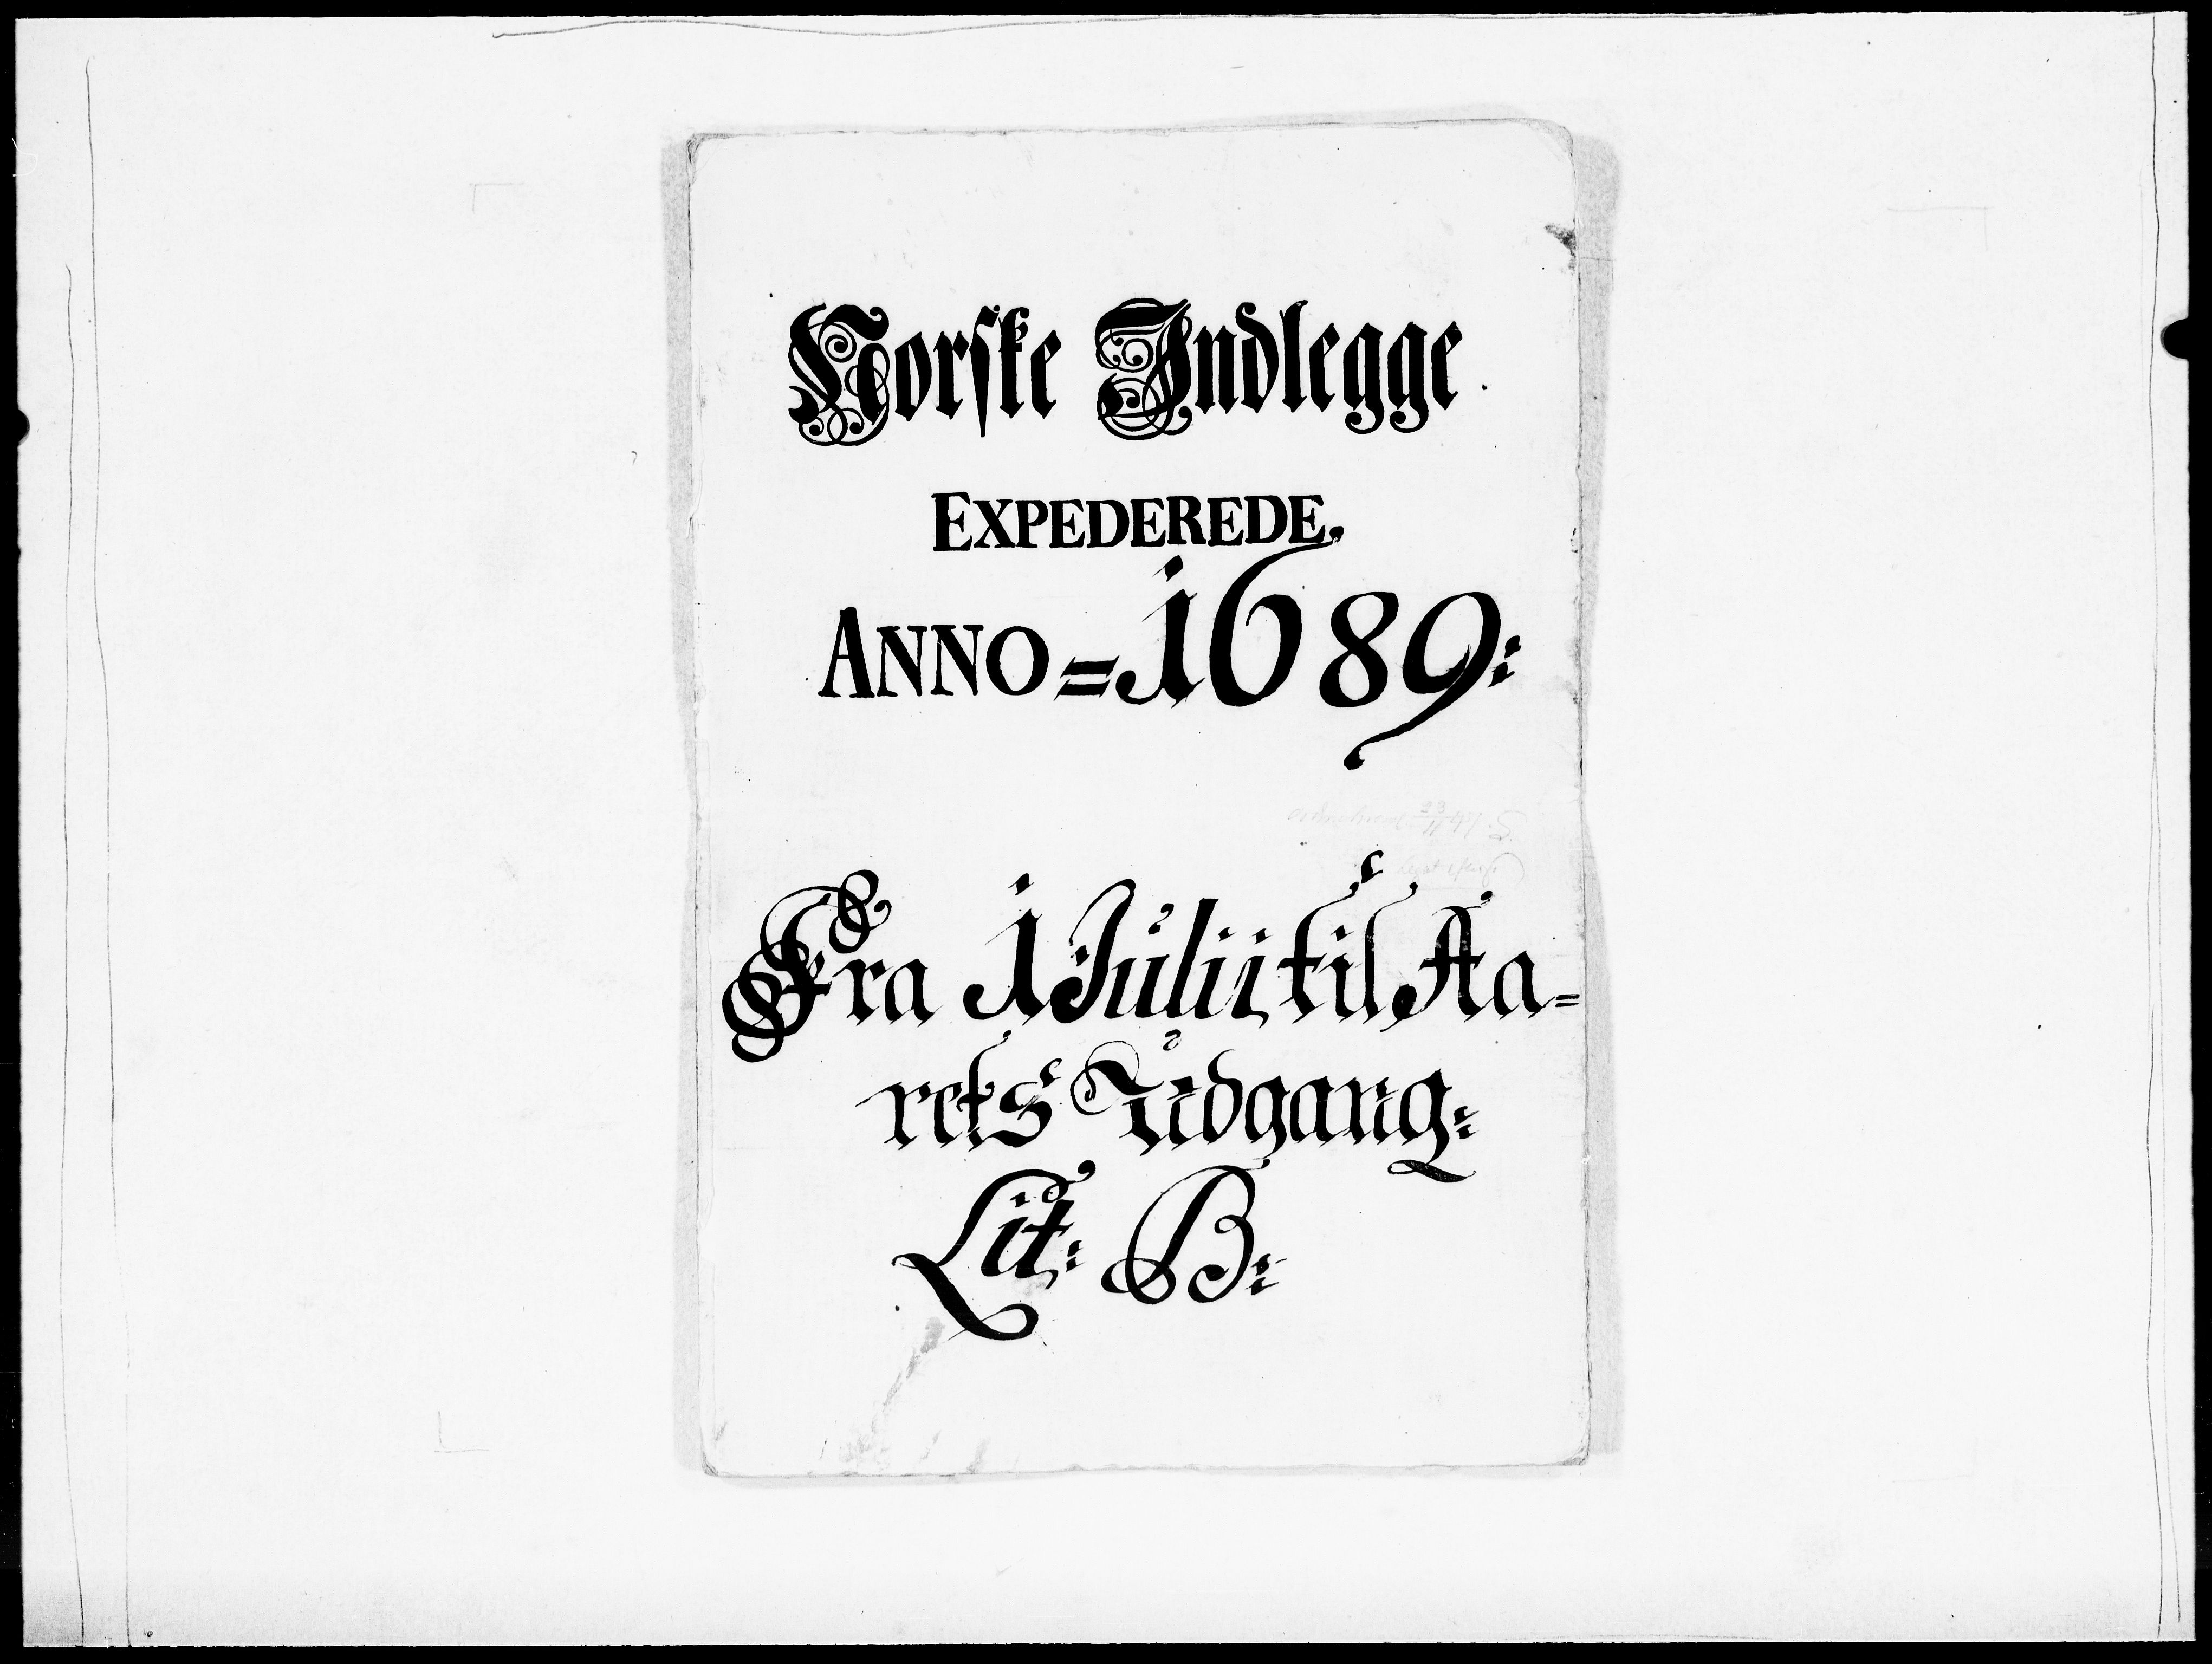 Norske Indlegge.
EXPEDEREDE.
ANNO = 1689:
Fra 1 Julii til Aa=
rets Udgang:
Lit: B: